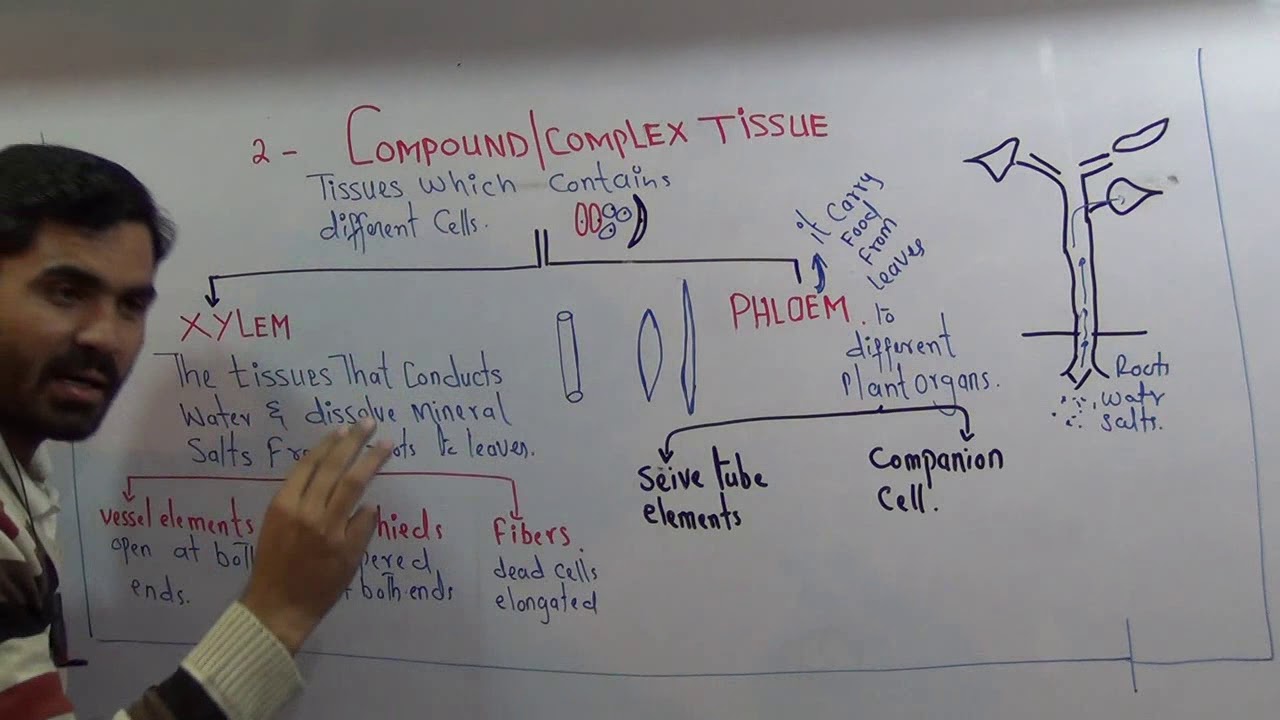 2 - COMPOUND/COMPLEX TISSUE
Tissues which contains
different cells.
XYLEM
The tissues That Conducts
Water & dissolve mineral
Salts leaves.
vessel elements
open at both
ends.
both ends
Fibers.
dead cells
elongated
PHLOEM.
it Carry
Food
From
leaves
to
different
Plant organs.
Seive tube
elements
Companion
Cell.
Roots
watr
salts.